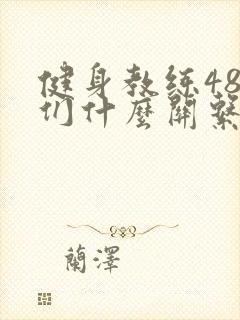 健身教练48
们什麼關繫
蘭澤